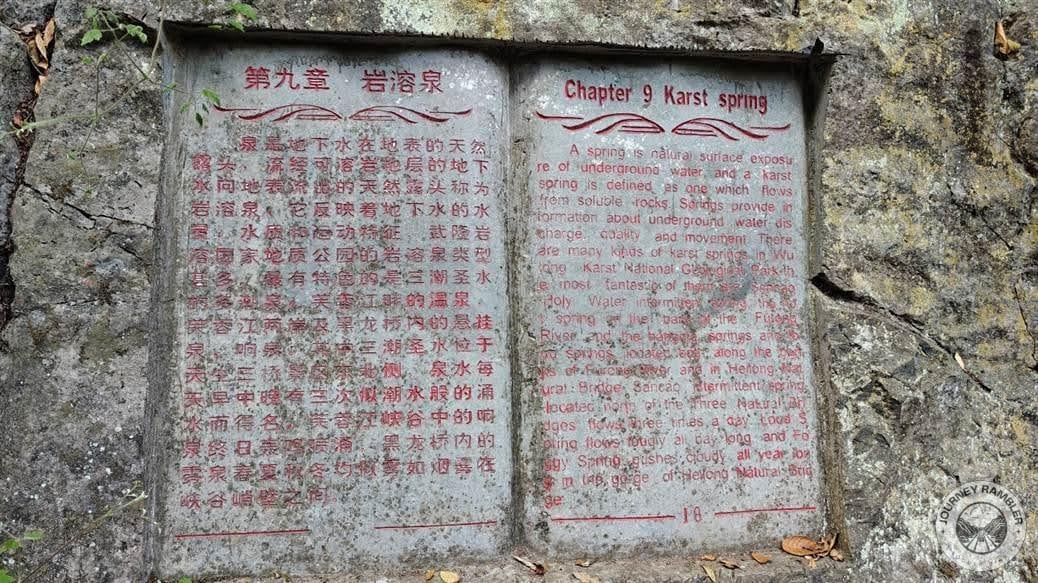 第九章 岩溶泉
泉是地下水在地表的天然
露头，流经可溶岩地层的地下
水向地表流出的天然露头称为
岩溶泉。它反映着地下水的水
质和运动特征。武隆岩
溶国家地质公园的岩溶泉类型
最有特色的是三潮圣水
的温泉，
芙蓉江两岸及黑龙桥内的悬挂
泉、响泉 三潮圣水位于
天生三桥 北侧，泉水每
天早中晚有三次似潮水般的涌
水而得名。芙蓉江峡谷中的响
泉终日 黑龙桥内的
雾泉春夏秋冬均似雾如烟雾在
峡谷峭壁之间
Chapter 9 Karst spring
A spring is natural surface exposu
re of underground water, and a karst
spring is defined as one which flows
from soluble rocks. Springs provide in
formation about underground water dis
charge, quality and movement. There
are many kinds of karst springs in Wu
long Karst National Geological Park. th
e most fantastic of them are Sancao
Holy Water intermittent spring, the
t spring on the bank of the Furong
River, and the hanging springs and
springs located both along the
ks of Furong River and in Heilong Nat
ural Bridge. Sancao intermittent spring
located north of the Three Natural Bri
dges flows three times a day. Loud S
pring flows rougly all day long and Fo
ggy Spring gushes cloudy all year lon
g in the gorge of Heilong Natural Brid
ge.
18
JOURNEY RAMBLER